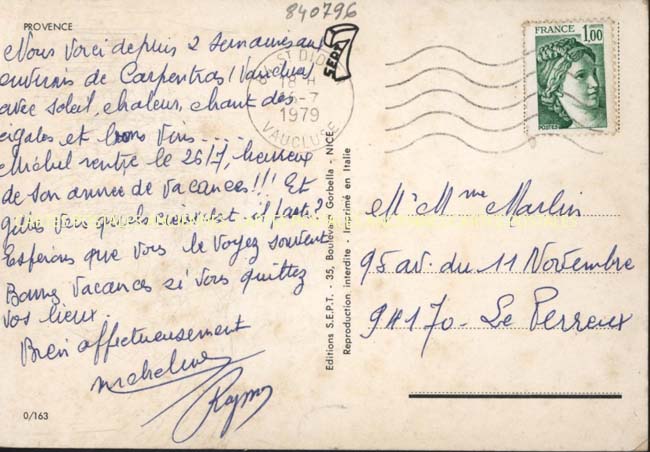 840796
PROVENCE
Nous voici depuis 2 semaines aux
environs de Carpentras (Vaucluse)
avec soleil, chaleur, chant des
cigales et bons vins....
Michel rentre le 26/7, heureux
de son année de vacances!!! Et
Gilles
Espérons que vous le voyez souvent
Bonnes vacances si vous quittez
vos lieux.
Bien affectueusement
Micheline
Raymond
0/163
SEPT
ST DIDIER
18 H
16-7
1979
VAUCLUSE
FRANCE
1,00
POSTES
Editions S.E.P.T. - 35, Boulevard Gorbella - NICE
Reproduction interdite - Imprimé en Italie
Mr Mme Marlin
95 av. du 11 Novembre
94170 - Le Perreux